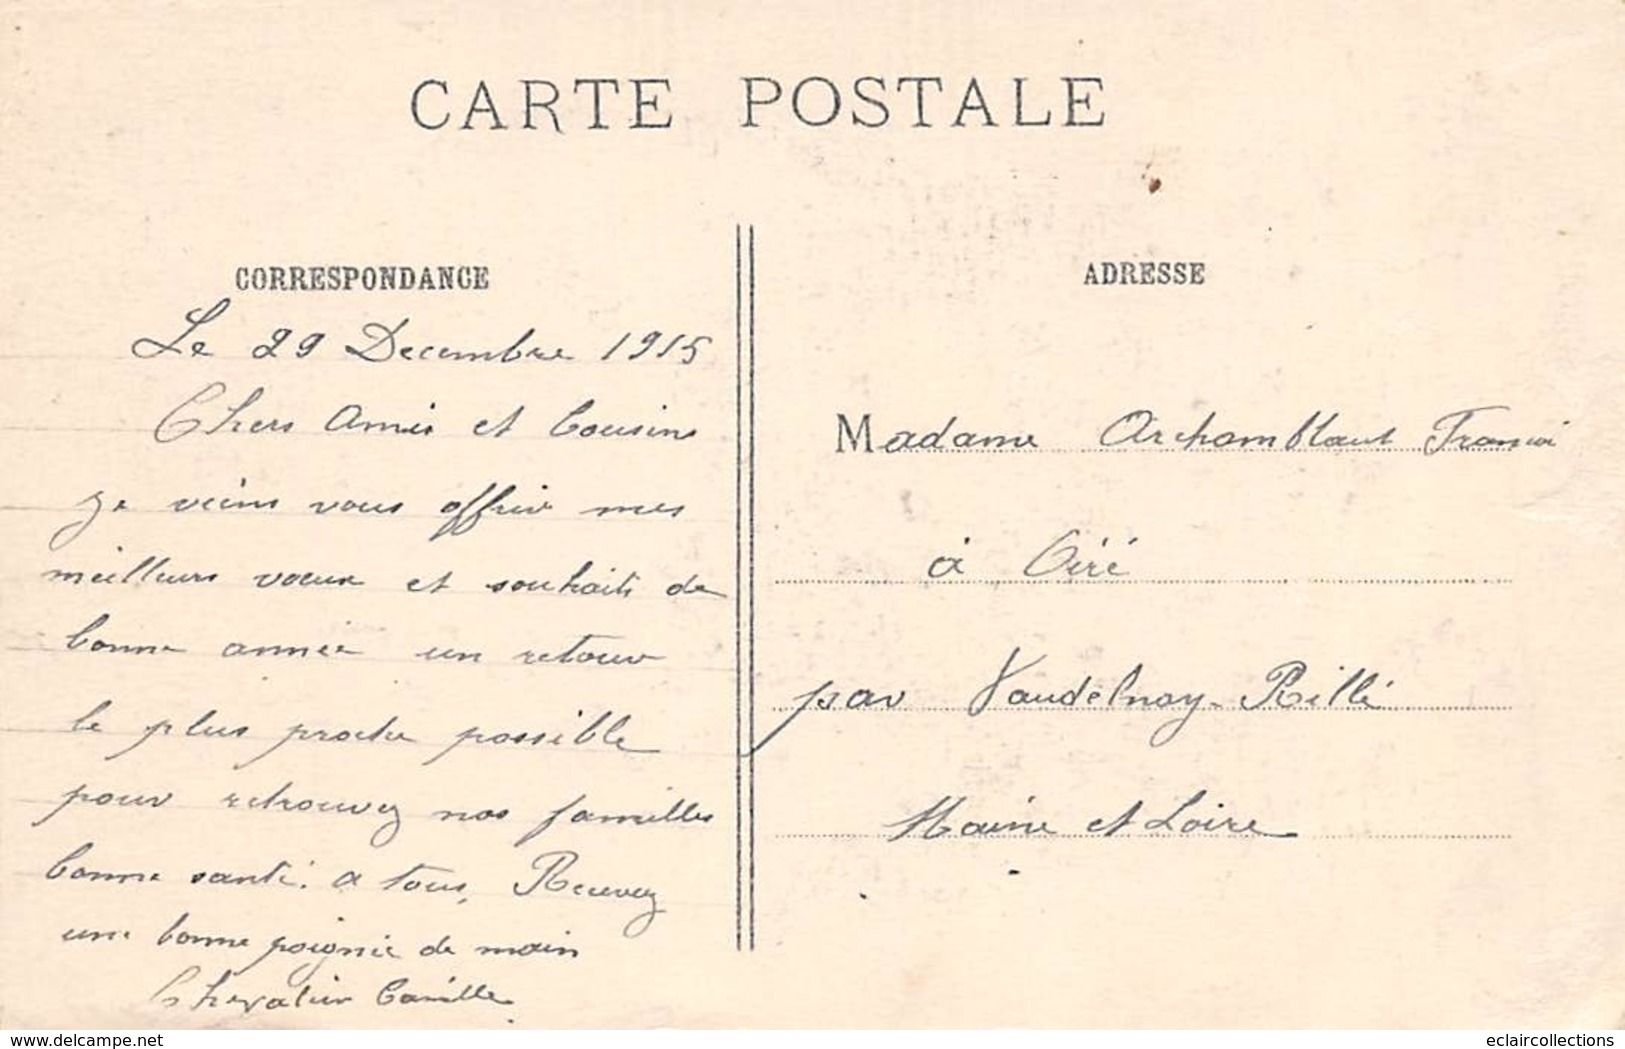 CARTE POSTALE
CORRESPONDANCE
Le 29 Decembre 1915
Chers Amis et Cousins
Je veins vous offrir mes
meilleurs voeux et souhaits de
bonne année un retour
le plus proche possible
pour retrouvez nos familles
bonne santé. a tous, Recevez
une bonne poignie de main
Chevalier Camille
ADRESSE
Madame Archamblaut
à Ciré
par Vaudelnay-Rillé
Maine et Loire
delcampe.net
eclaircollections